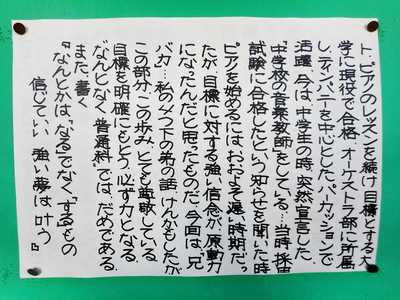 ト、ピアノのレッスンを続け目標とする大
学に現役で合格、オーケストラ部に所属
し、ティンパニーを中心としたパーカッションで
活躍、今は、中学生の時、突然宣言した
「中学校の音楽教師」をしている…当時、採用
試験に合格したという知らせを聞いた時
ピアを始めるには、おおよそ遅い時期だっ
たが、目標に対する強い信念が、原動力
になったんだと思ったものだ。今回は、兄
バカ…私の4つ下の弟の話、けんかもしたが
この部分、この歩み、とても尊敬している
目標を明確にもとう、必ず力となる、
なんとなく、普通科では、だめである、
また、書く
『なんとかは「なる」でなく「する」もの
信じていい 強い夢は叶う』